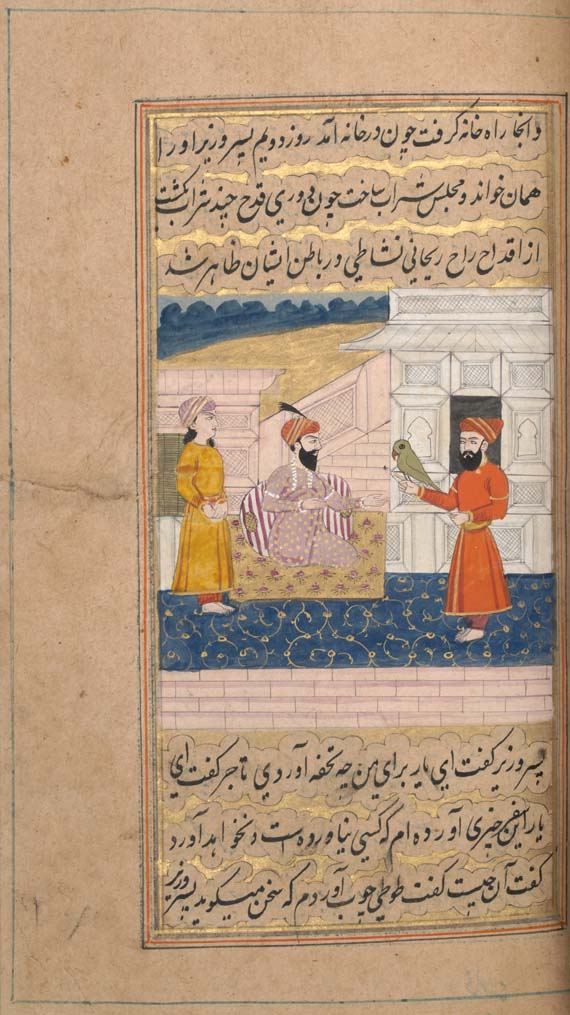 و آنجا راه خانه گرفت چون در خانه آمد روز دویم پسر وزیر او را
همان خواند و مجلس شراب ساخت چون دوری قدح چند شراب گشت
از اقداح راح ریحانی نشاطی در باطن ایشان ظاهر شد
پسر وزیر گفت ای یار برای من چه تحفه آوردی تاجر گفت ای
یار این چیزی آورده ام که کسی نیاورده است و نخواهد آورد
گفت آن چیست گفت طوطی خوب آوردم که سخن میگوید پسر وزیر